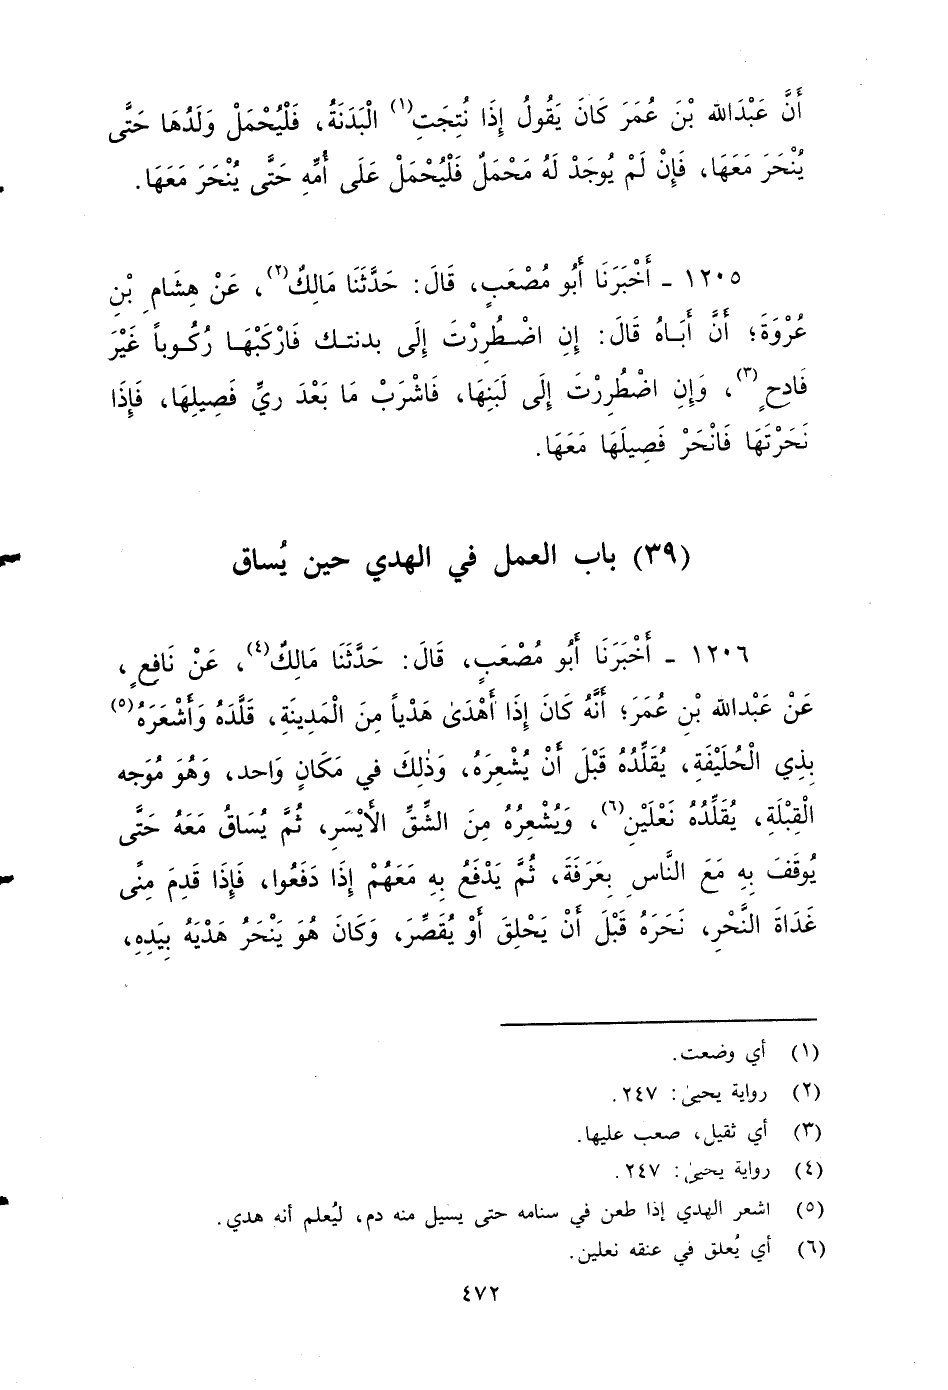 أَنَّ عَبْدَالله بْنَ عُمَرَ كَانَ يَقُولُ إِذَا نُتِجَتِ(١) الْبَدَنَةُ، فَلْيُحْمَلْ وَلَدُهَا حَتَّى
يُنْحَرَ مَعَهَا، فَإِنْ لَمْ يُوجَدْ لَهُ مَحْمَلٌ فَلْيُحْمَلْ عَلَى أُمِّهِ حَتَّى يُنْحَرَ مَعَهَا.
١٢٠٥ - أَخْبَرَنَا أَبُو مُصْعَبٍ، قَالَ: حَدَّثَنَا مَالِكٌ(٢)، عَنْ هِشَامِ بْنِ
عُرْوَةَ؛ أَنَّ أَبَاهُ قَالَ: إِنِ اضْطُرِرْتَ إِلَى بدنتك فَارْكَبْهَا رُكُوباً غَيْرَ
فَادِحٍ(٣)، وَإِنِ اضْطُرِرْتَ إِلَى لَبَنِهَا، فَاشْرَبْ مَا بَعْدَ ريِّ فَصِيلِهَا، فَإِذَا
نَحَرْتَهَا فَانْحَرْ فَصِيلَهَا مَعَهَا.
(٣٩) باب العمل في الهدي حين يُساق
١٢٠٦ - أَخْبَرَنَا أَبُو مُصْعَبٍ، قَالَ: حَدَّثَنَا مَالِكٌ(٤)، عَنْ نَافِعٍ،
عَنْ عَبْدِالله بْنِ عُمَرَ؛ أَنَّهُ كَانَ إِذَا أَهْدَىٰ هَدْياً مِنَ الْمَدِينَةِ، قَلَّدَهُ وَأَشْعَرَهُ(٥)
بِذِي الْحُلَيْفَةِ، يُقَلِّدُهُ قَبْلَ أَنْ يُشْعِرَهُ، وَذٰلِكَ في مَكَانٍ وَاحد، وَهُوَ مُوَجه
الْقِبْلَةِ، يُقَلِّدُهُ نَعْلَيْنِ(٦)، وَيُشْعِرُهُ مِنَ الشِّقِّ الأَيْسَرِ، ثُمَّ يُسَاقُ مَعَهُ حَتَّى
يُوقَفَ بِهِ مَعَ النَّاسِ بِعَرَفَةَ، ثُمَّ يَدْفَعُ بِهِ مَعَهُمْ إِذَا دَفَعُوا، فَإِذَا قَدِمَ مِنًى
غَدَاةَ النَّحْرِ، نَحَرَهُ قَبْلَ أَنْ يَحْلِقَ أَوْ يُقَصِّرَ، وَكَانَ هُوَ يَنْحَرُ هَدْيَهُ بِيَدِهِ،
(١) أي وضعت.
(٢) رواية يحيىٰ: ٢٤٧.
(٣) أي ثقيل، صعب عليها.
(٤) رواية يحيىٰ: ٢٤٧.
(٥) اشعر الهدي إذا طعن في سنامه حتى يسيل منه دم، ليُعلم أنه هدي.
(٦) أي يُعلق في عنقه نعلين.
٤٧٢